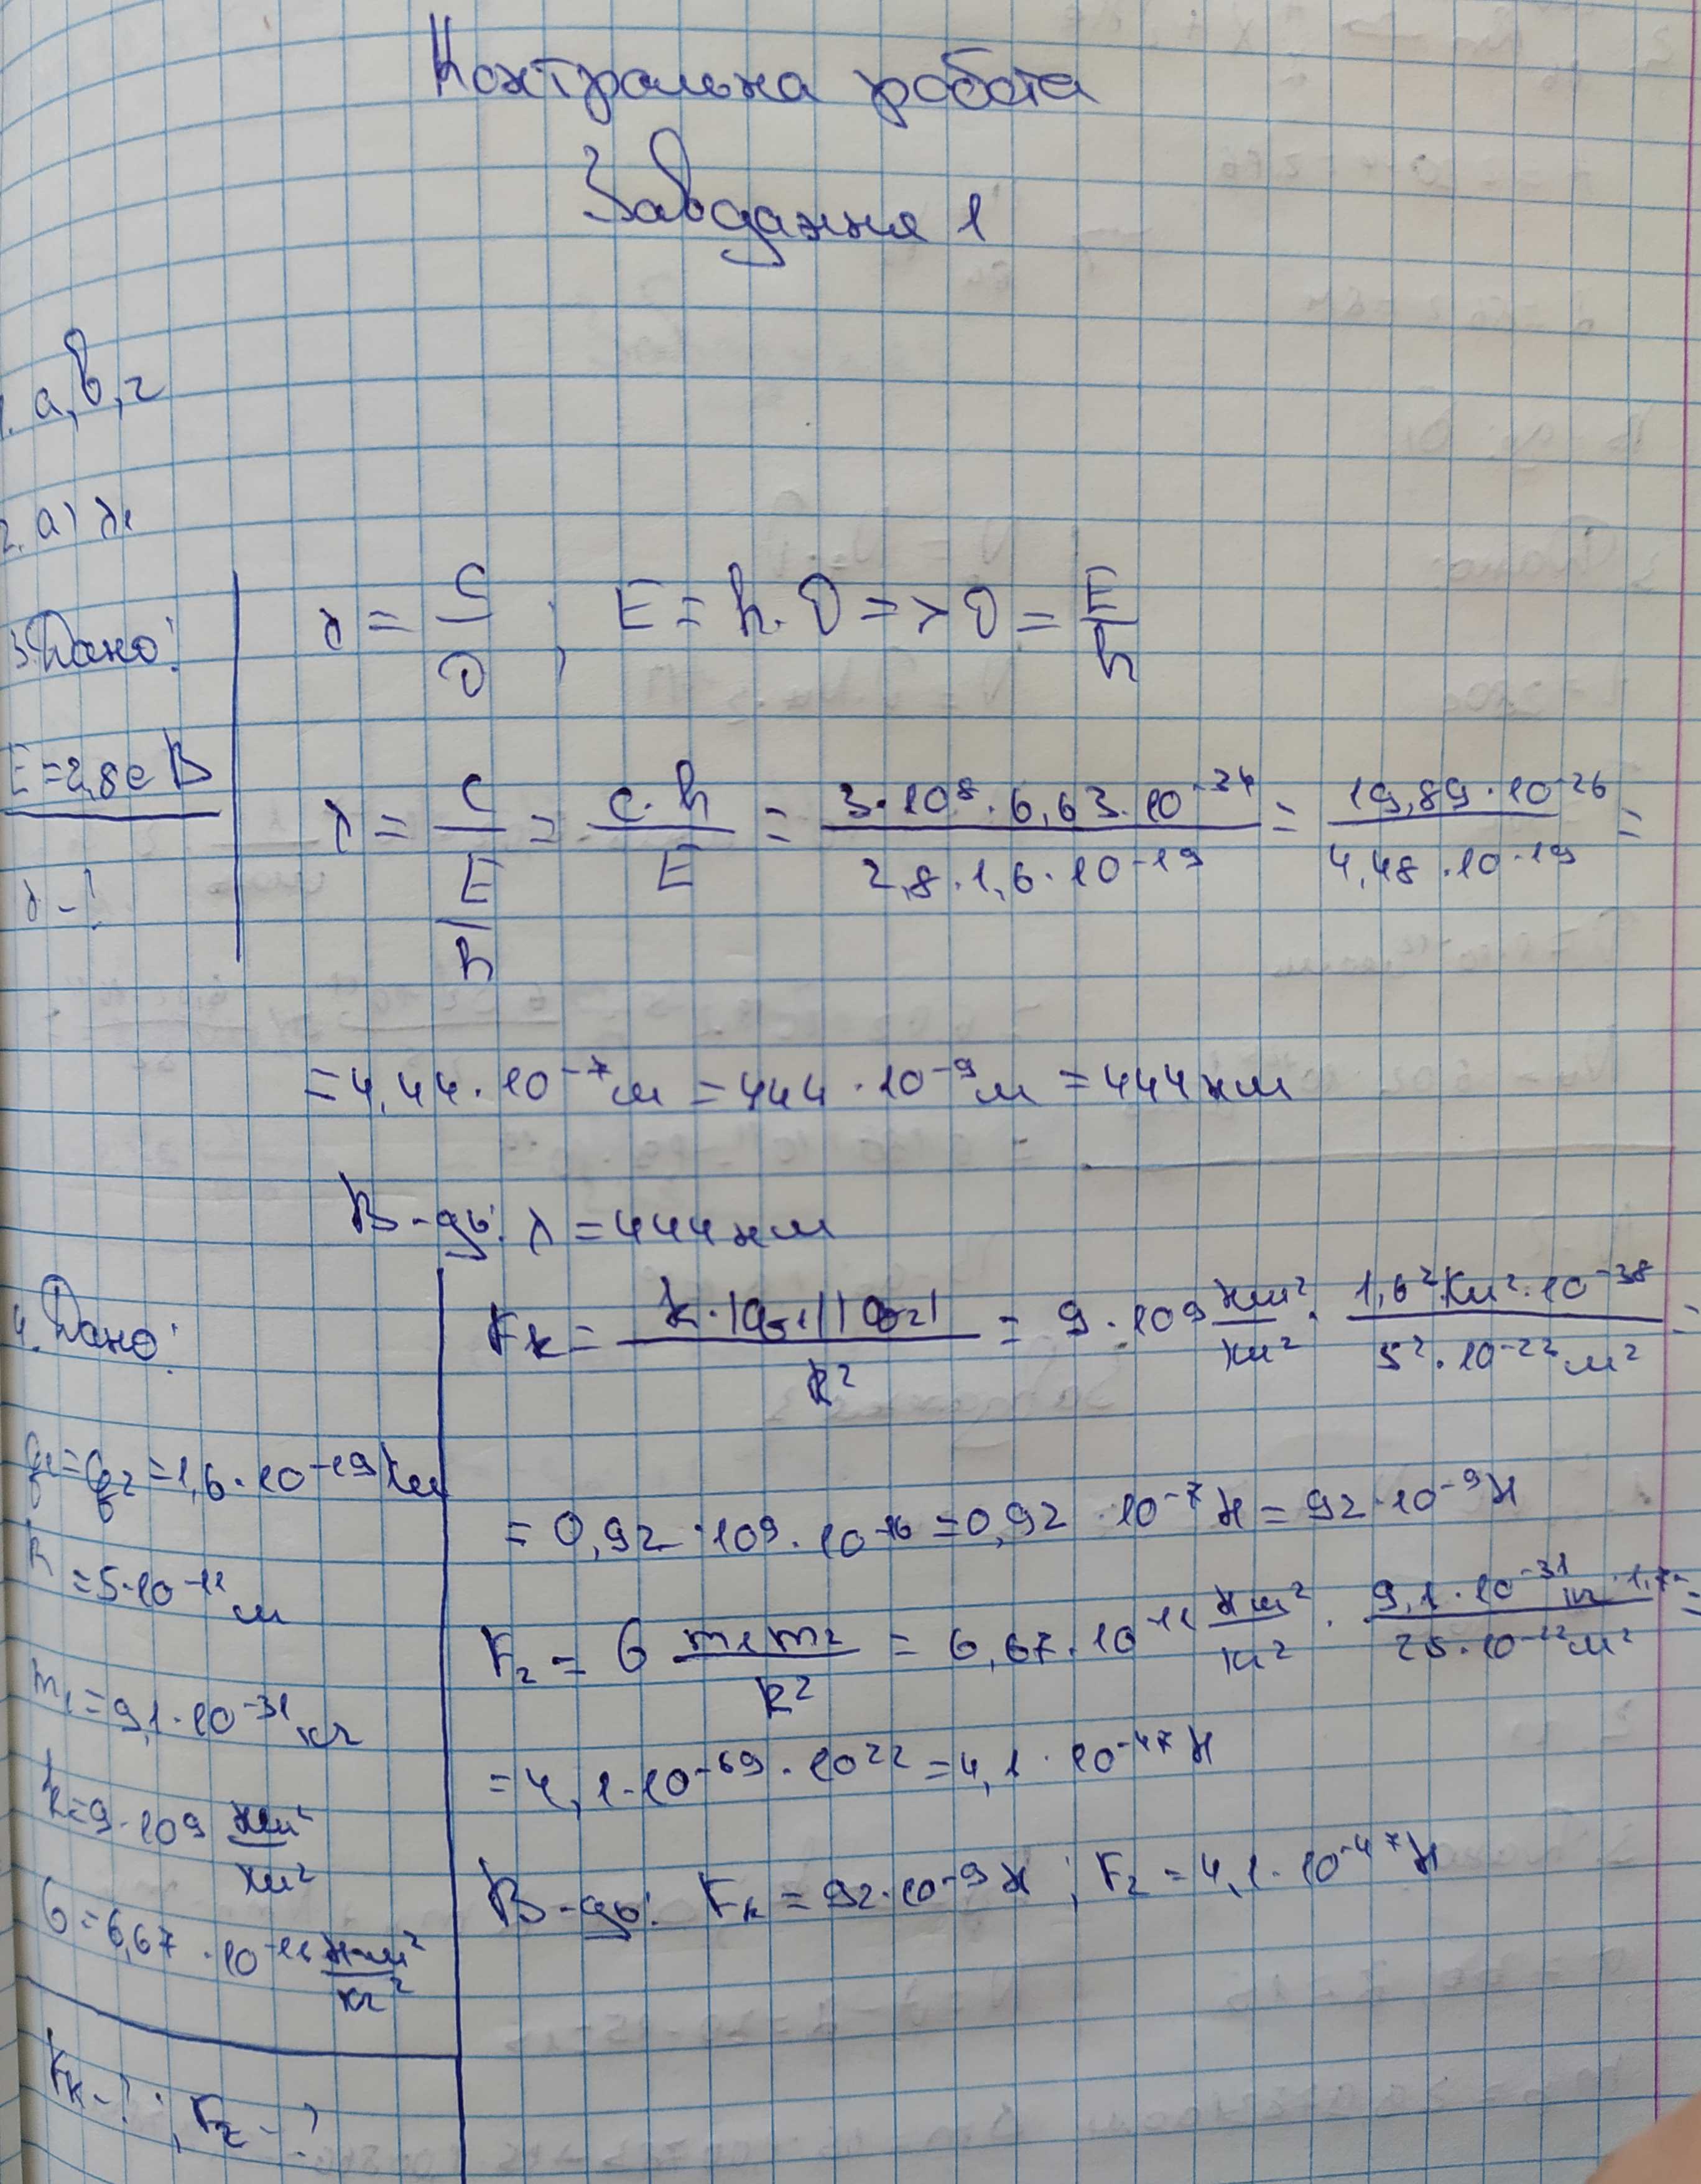 Контрольна робота
Завдання 1
1. а, в, г
2. а) λ₁
3. Дано:
E = 2,8 еВ
λ - ?
λ = c/ν ; E = h · ν => ν = E/h
λ = c/(E/h) = c · h/E = 3 · 10⁸ · 6,63 · 10⁻³⁴ / 2,8 · 1,6 · 10⁻¹⁹ = 19,89 · 10⁻²⁶ / 4,48 · 10⁻¹⁹ =
= 4,44 · 10⁻⁷ м = 444 · 10⁻⁹ м = 444 нм
В-дь: λ = 444 нм
4. Дано:
q₁ = q₂ = 1,6 · 10⁻¹⁹ Кл
R = 5 · 10⁻¹¹ м
m₁ = 9,1 · 10⁻³¹ кг
k = 9 · 10⁹ Нм²/Кл²
G = 6,67 · 10⁻¹¹ Н·м²/кг²
Fк - ? ; Fг - ?
Fк = k · |q₁||q₂| / R² = 9 · 10⁹ Нм²/Кл² · 1,6² Кл² · 10⁻³⁸ / 5² · 10⁻²² м² =
= 0,92 · 10⁹ · 10⁻¹⁶ = 0,92 · 10⁻⁷ Н = 92 · 10⁻⁹ Н
Fг = G m₁m₂ / R² = 6,67 · 10⁻¹¹ Нм²/кг² · 9,1 · 10⁻³¹ кг · 1,7 / 25 · 10⁻²² м² =
= 4,1 · 10⁻⁶⁹ · 10²² = 4,1 · 10⁻⁴⁷ Н
В-дь: Fк = 92 · 10⁻⁹ Н ; Fг = 4,1 · 10⁻⁴⁷ Н